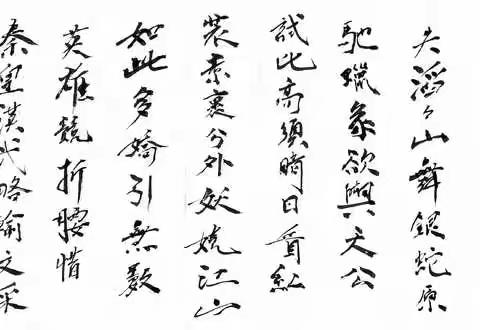 失滔々山舞銀蛇原
馳蠟象欲與天公
試比高須晴日看紅
裝素裹分外妖嬈江山
如此多嬌引無數
英雄競折腰惜
秦皇漢武略輸文采